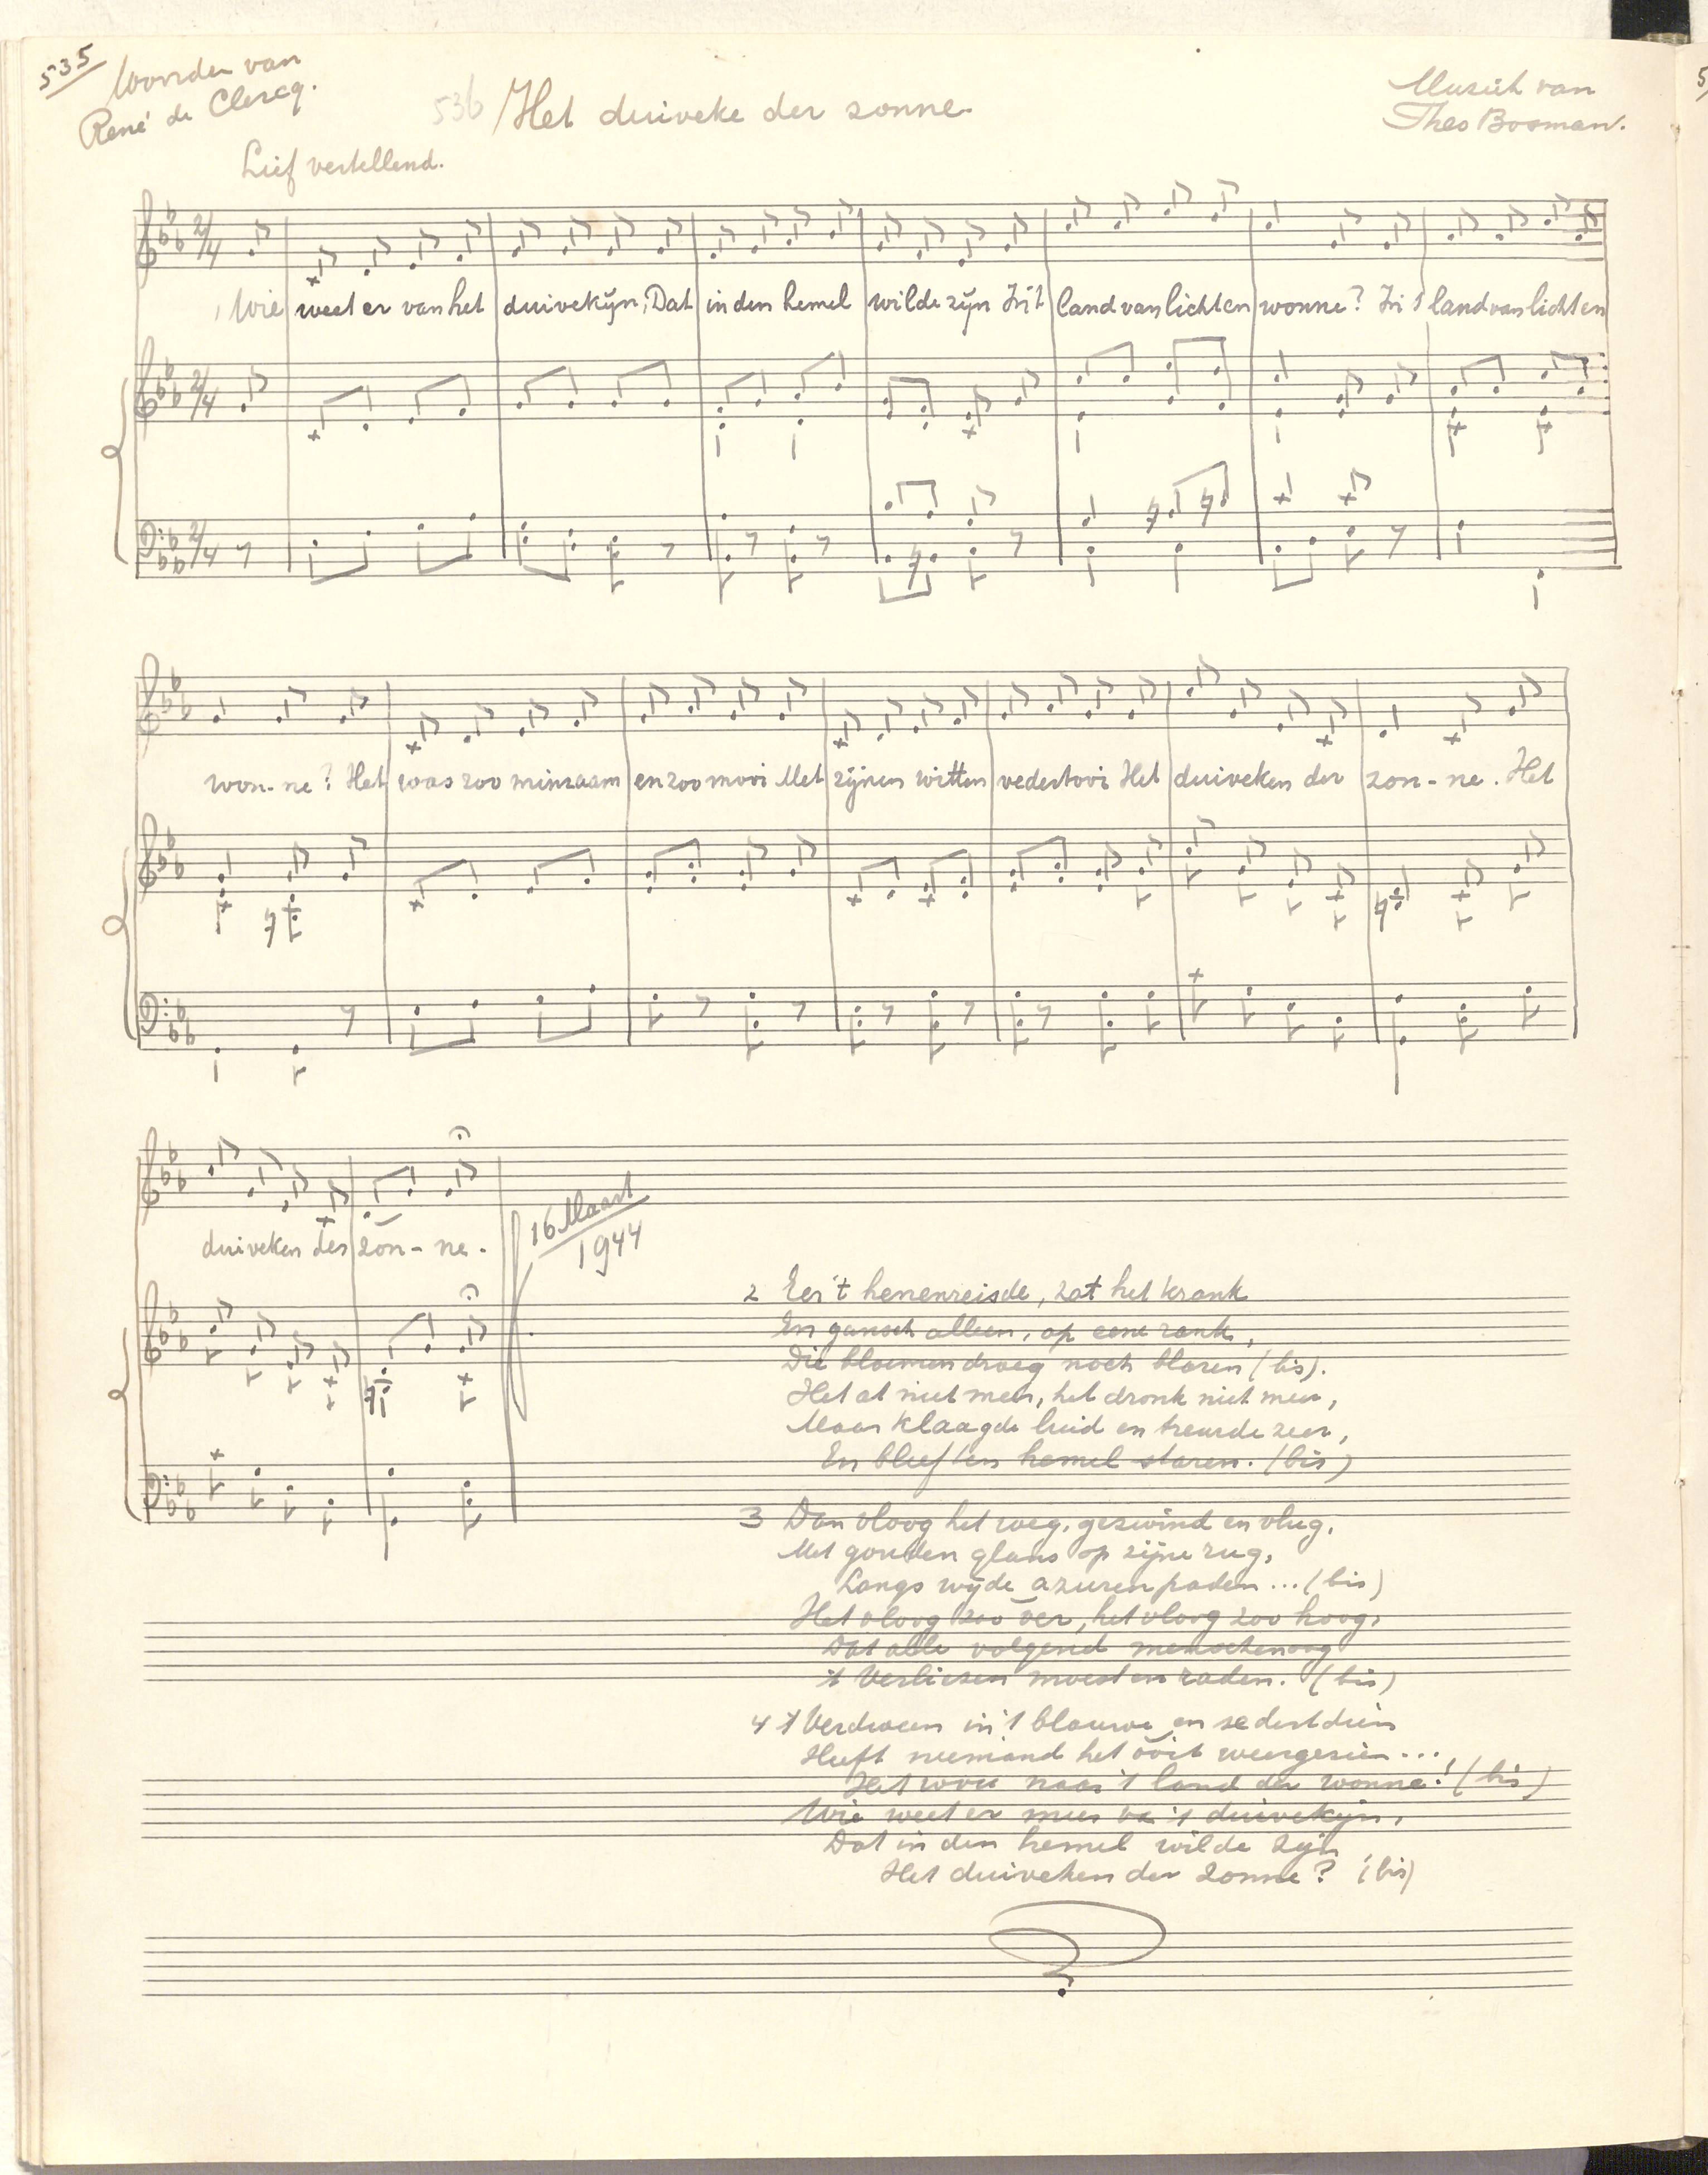 535
Woorden van
René de Clercq.
536 Het duiveke der zonne.
Muziek van
Theo Bosman.
Lief vertellend.
Wie weet er van het duivekijn, Dat in den hemel wilde zijn In 't land van licht en wonne? In 't land van licht en
won-ne? Het was zoo minzaam en zoo mooi Met zijnen witten vedertooi Het duiveken der zon-ne. Het
duiveken der zon-ne.
16 Maart
1944
2 Eer 't henenreisde, zat het krank
En gansch alleen, op eene rank,
Die bloemen droeg noch blaren (bis).
Het at niet meer, het dronk niet meer,
Maar klaagde luid en treurde zeer,
En bleef ten hemel staren. (bis)
3 Dan vloog het weg, gezwind en vlug,
Met gouden glans op zijne rug,
Langs wijde azuren paden... (bis)
Het vloog zoo ver, het vloog zoo hoog,
Dat alle volgend menschenoog
't Verliezen moest en raden. (bis)
4 't Verdween in 't blauwe en sedert dien
Heeft niemand het ooit weergezien...
Het wou naar 't land der wonne! (bis)
Wie weet er meer va 't duivekijn,
Dat in den hemel wilde zijn
Het duiveken der zonne? (bis)